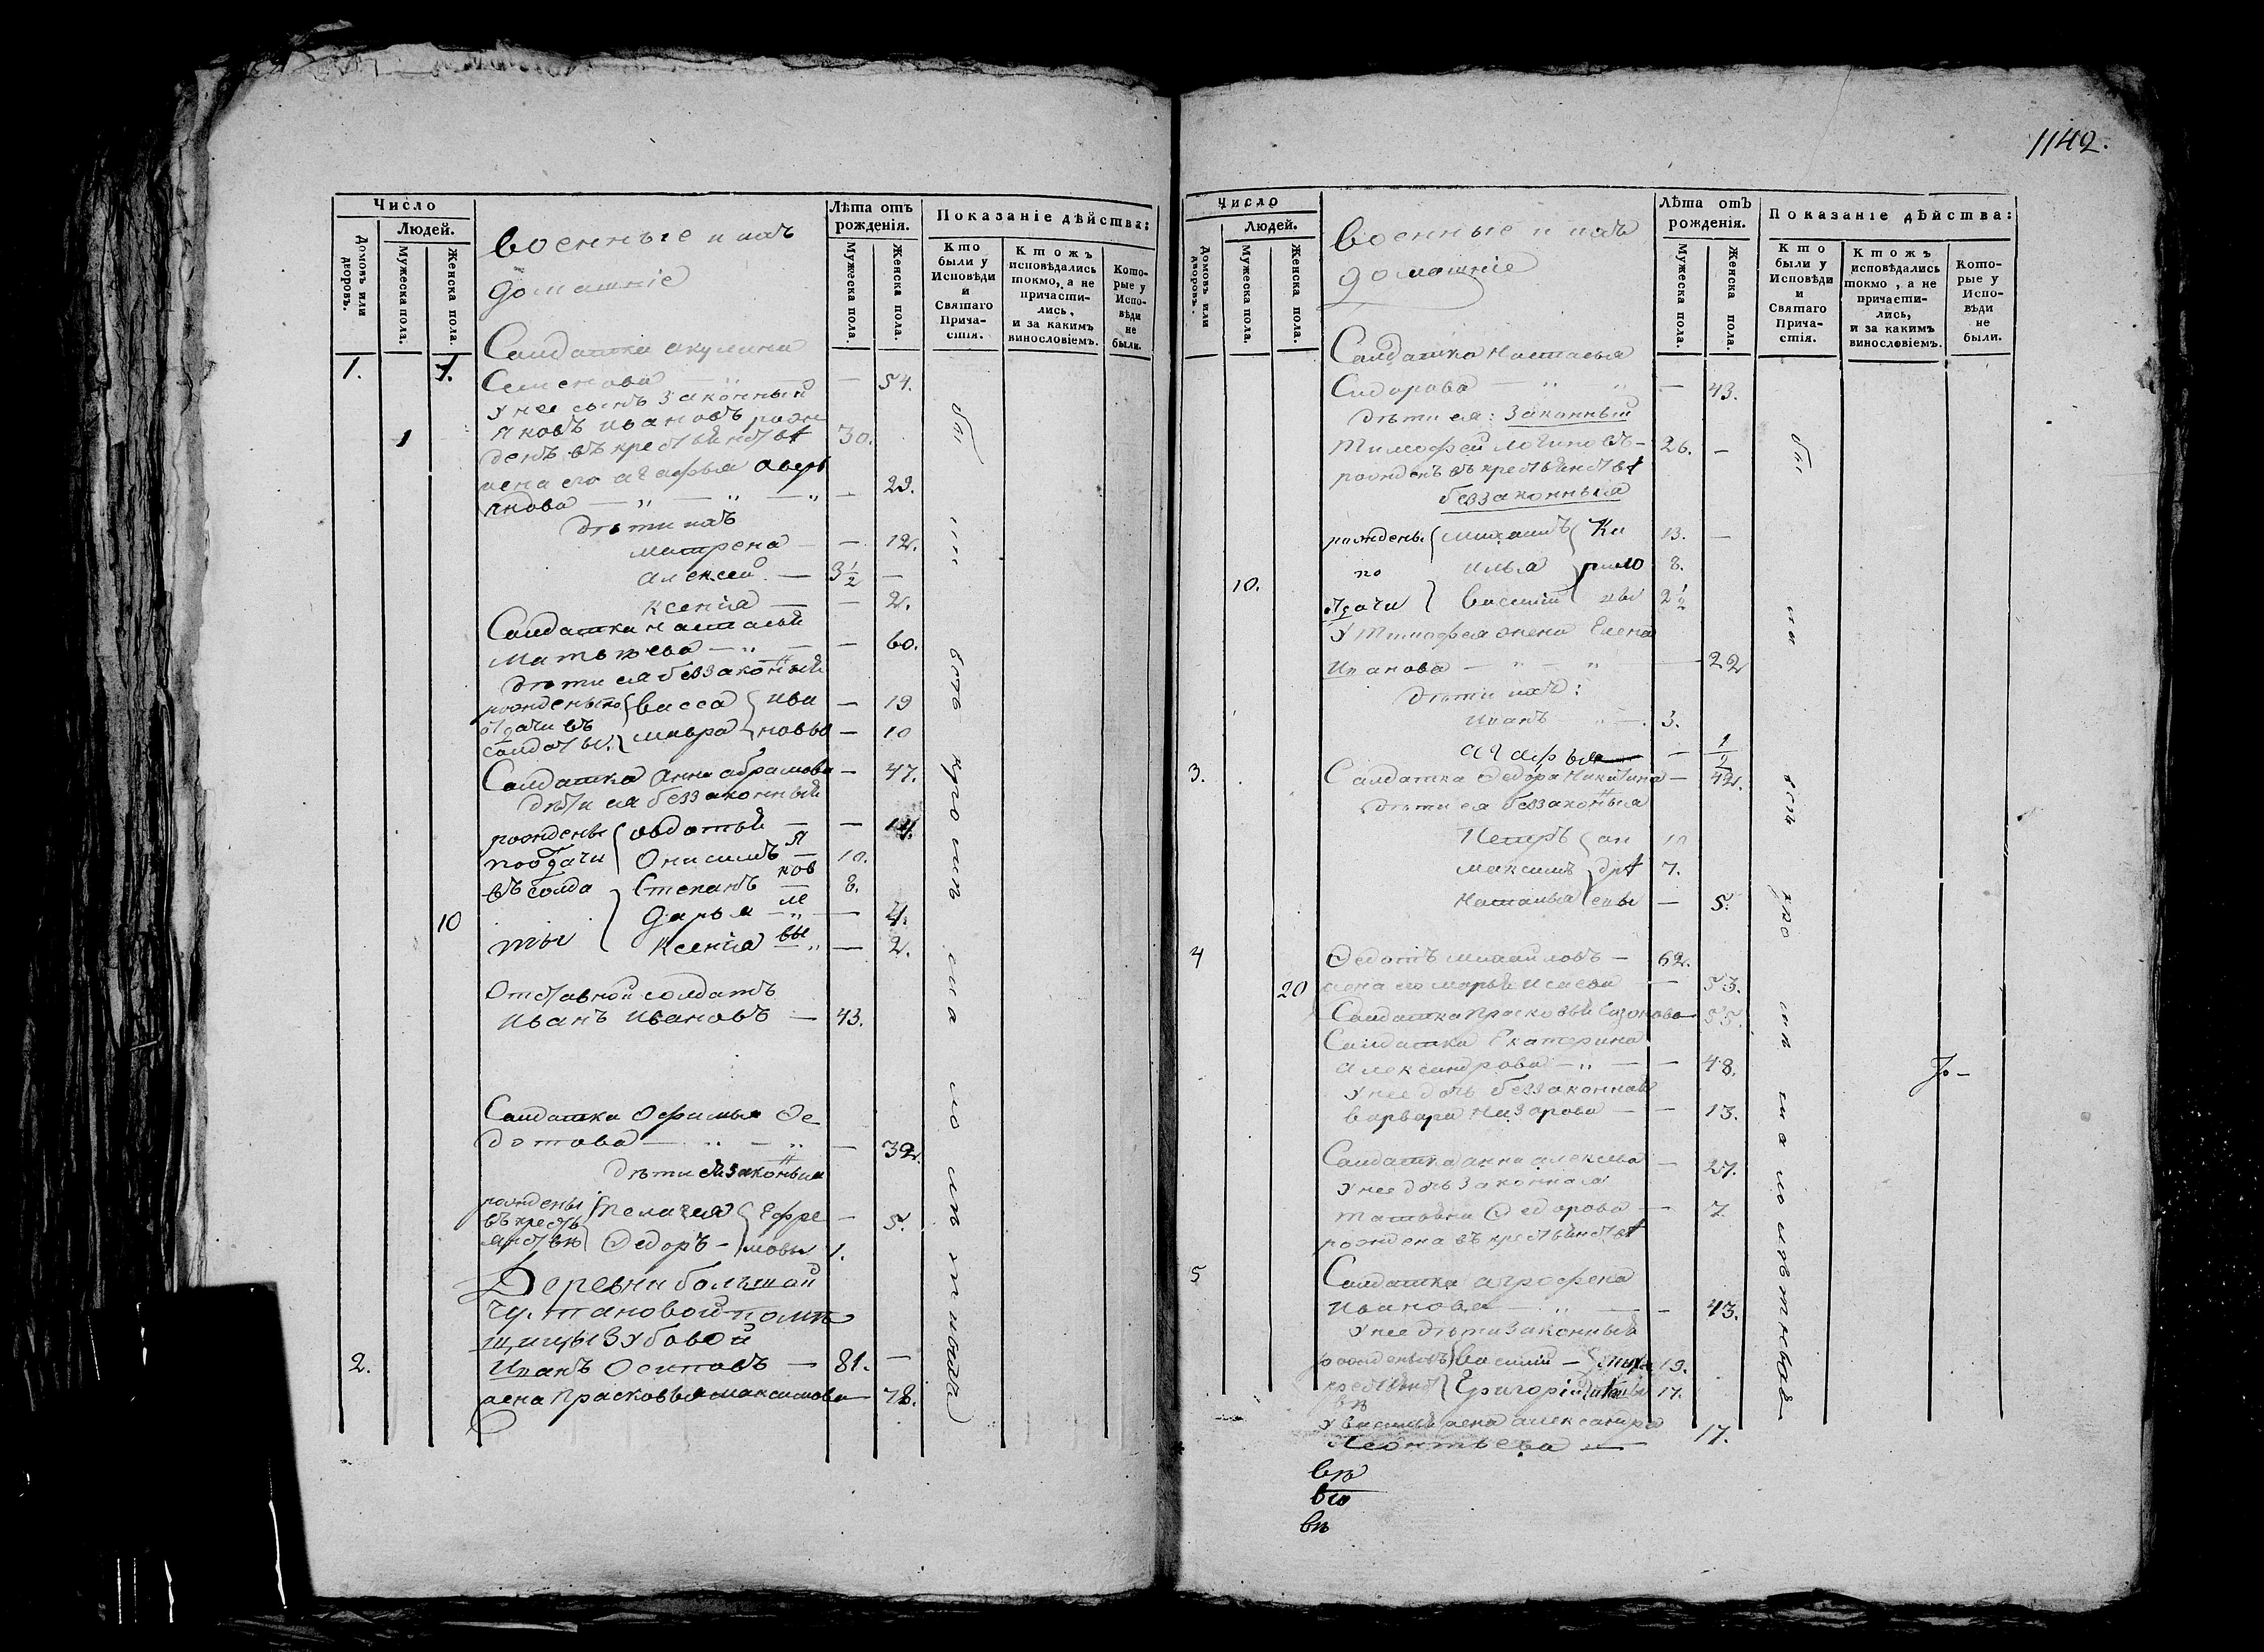 Число
Людей.
Домовъ или дворовъ.
Мужеска пола.
Женска пола.
военные и ихъ
домашніе
Лѣта отъ рожденія.
Мужеска пола.
Женска пола.
Показаніе дѣйства:
Кто были у Исповѣди и Святаго Причастія.
Ктожъ исповѣдались токмо, а не причастились, и за какимъ винословіемъ.
Которые у Исповѣди не были.
Салдатка акулина
1. 1. Семенова — „ — — 54.
У нее сынъ законный
Яковъ Ивановъ рож
1 денъ въ крестьянствѣ 30.
жена его агафья авера
янова — „ — „ — „ — 29.
дѣти ихъ
матрена — — 12.
алексей — 3 1/2 —
ксенія — — 2.
Салдатка настасья
Матвѣева — „ — — 60.
дѣти ея беззаконныя
рождены по васса ива — 19
отдачи въ
салдаты. мавра новы — 10
Салдатка Анна абрамова — 47.
дѣти ея беззаконный
рождены авдотья — — 14.
по отдачи Онисимъ Я 10.
въ солда Степанъ ков 8.
10 Дарья ле — 4.
ты Ксенія вы „ — 2.
Отставной солдатъ
Иванъ Ивановъ — 43.
Салдатка Офимья Ѳе
дотова — „ — „ — 32.
дѣти законныя
рождены
въ кресть Пелагея Ефре — 5.
янствѣ Ѳедоръ — мовы 1.
Деревни большой
Чустановой помѣ
щицы Зубовой
2. Иванъ Осиповъ — 81. —
жена Прасковья максимова — 78.
бы
ли
всѣ кромѣ малолѣтныхъ
1142.
Число
Людей.
Домовъ или дворовъ.
Мужеска пола.
Женска пола.
военные и ихъ
домашніе
Лѣта отъ рожденія.
Мужеска пола.
Женска пола.
Показаніе дѣйства:
Кто были у Исповѣди и Святаго Причастія.
Ктожъ исповѣдались токмо, а не причастились, и за какимъ винословіемъ.
Которые у Исповѣди не были.
Салдатка Настасья
Сидорова — „ „ — 43.
дѣти ея: законный
Тимофей логиновъ — 26. —
рожденъ въ крестьянствѣ
беззаконныя
рождены михаилъ Ки 13. —
по илья рило 8.
10. отдачи василий вы 2 1/2
У Тимофея жена Елена
Иванова — „ — „ — 22
дѣти ихъ:
иванъ — 3.
агафья — — 1/2
3. Салдатка Ѳедора Никитина — 42.
дѣти ея беззаконныя
Петръ ан 10
максимъ дрѣ 7.
Наталья евы — 5.
4 Ѳедотъ михайловъ — 62.
20 жена его марья исаева — 53.
Салдатка Прасковья Сазонова — 55.
Салдатка Екатерина
александрова — „ — — 48.
У нее дочь беззаконная
варвара Назарова — — 13.
Салдатка анна алексѣева — 27.
У нее дочь законная
татьяна Ѳедорова — — 7.
рождена въ крестьянствѣ
5 Салдатка аграфена
Иванова — „ — — 43.
У нее дѣти законный
рождены въ василий — 19.
крестьянст Григорій 17.
вѣ
У василья жена александра
Леонтьева — 17.
вѣ
вѣ
бы
ли
всѣ кро мѣ малолѣтныхъ